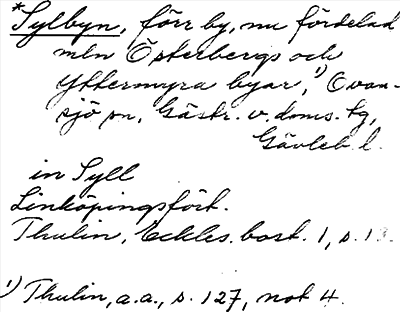 *Sylbyn, förr by, nu fördelad
mln Österbergs och
Yttermyra byar,¹) Ovan-
sjö sn, Gästr. v. doms. tg,
Gävleb. l.
in Syll
Linköpingsfört.
Thulin, Eckles. bost. 1, s. 13.
¹) Thulin, a.a., s. 127, not 4.